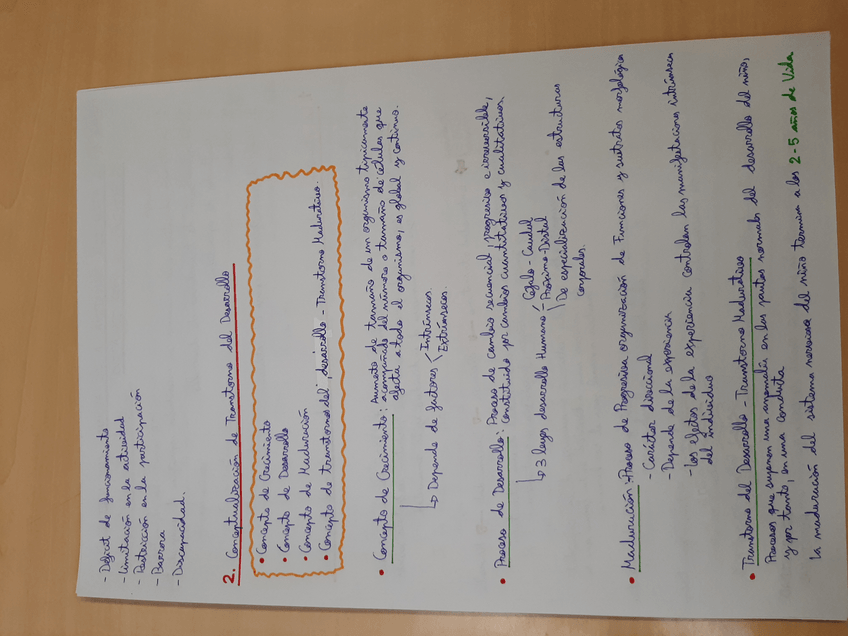 - Déficit de funcionamiento
- Limitación en la actividad
- Restricción en la participación
- Barrera
- Discapacidad.
2. Conceptualización de Transtorno del Desarrollo
• Concepto de Crecimiento
• Concepto de Desarrollo
• Concepto de Maduración
• Concepto de transtorno del desarrollo - Transtorno Madurativo.
• Concepto de Crecimiento: Aumento de tamaño de un organismo típicamente
acompañado del número o tamaño de células que
afecta a todo el organismo, es global y continuo.
↳ Depende de factores Intrínsecos.
Extrínsecos.
• Proceso de Desarrollo: Proceso de cambio secuencial, progresivo e irreversible,
constituido por cambios cuantitativos y cualitativos.
↳ 3 leyes desarrollo Humano - Céfalo-Caudal
Próximo-Distal
De especialización de las estructuras
corporales.
• Maduración: Proceso de Progresiva organización de Funciones y sustratos morfológicos
- Carácter direccional
- Depende de la experiencia
- Los efectos de la experiencia controlan las manifestaciones intrínsecas
del individuo
• Transtorno del Desarrollo - Transtorno Madurativo
Procesos que suponen una anomalía en las pautas normales del desarrollo del niño,
y por tanto, en una conducta
La maduración del sistema nervioso del niño termina a los 2-5 años de Vida